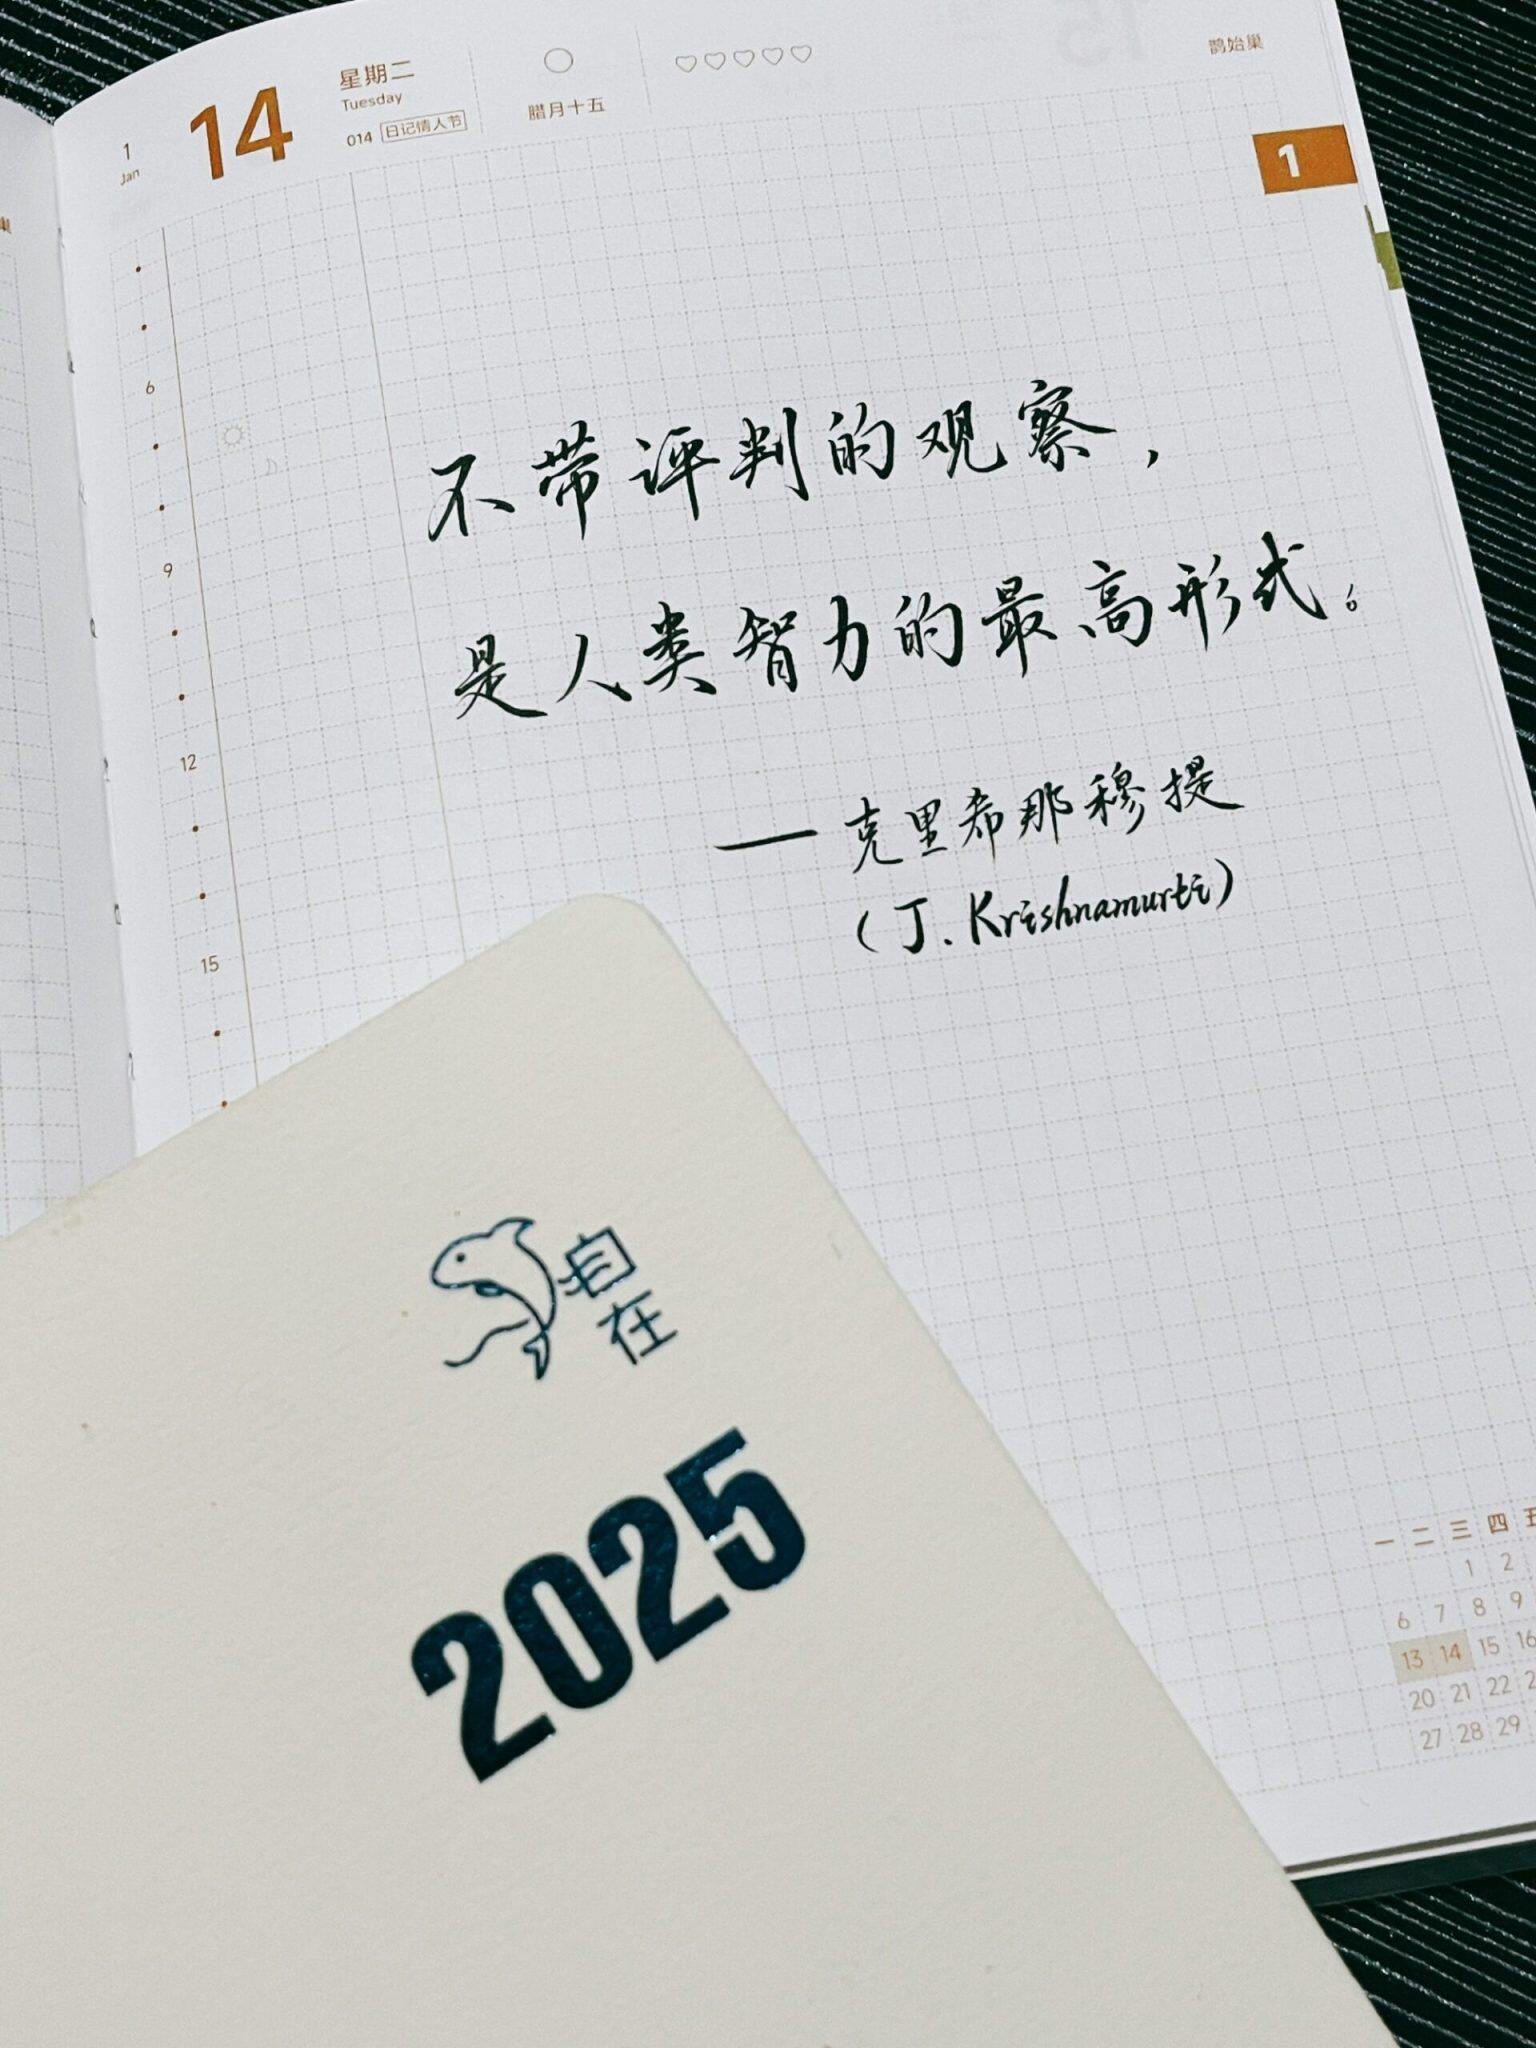 1
Jan
14
星期二
Tuesday
014 日记情人节
腊月十五
鹊始巢
1
6
9
12
15
不带评判的观察，
是人类智力的最高形式。
——克里希那穆提
(J. Krishnamurti)
自在
2025
一 二 三 四 五
1 2
6 7 8 9
13 14 15 16
20 21 22
27 28 29